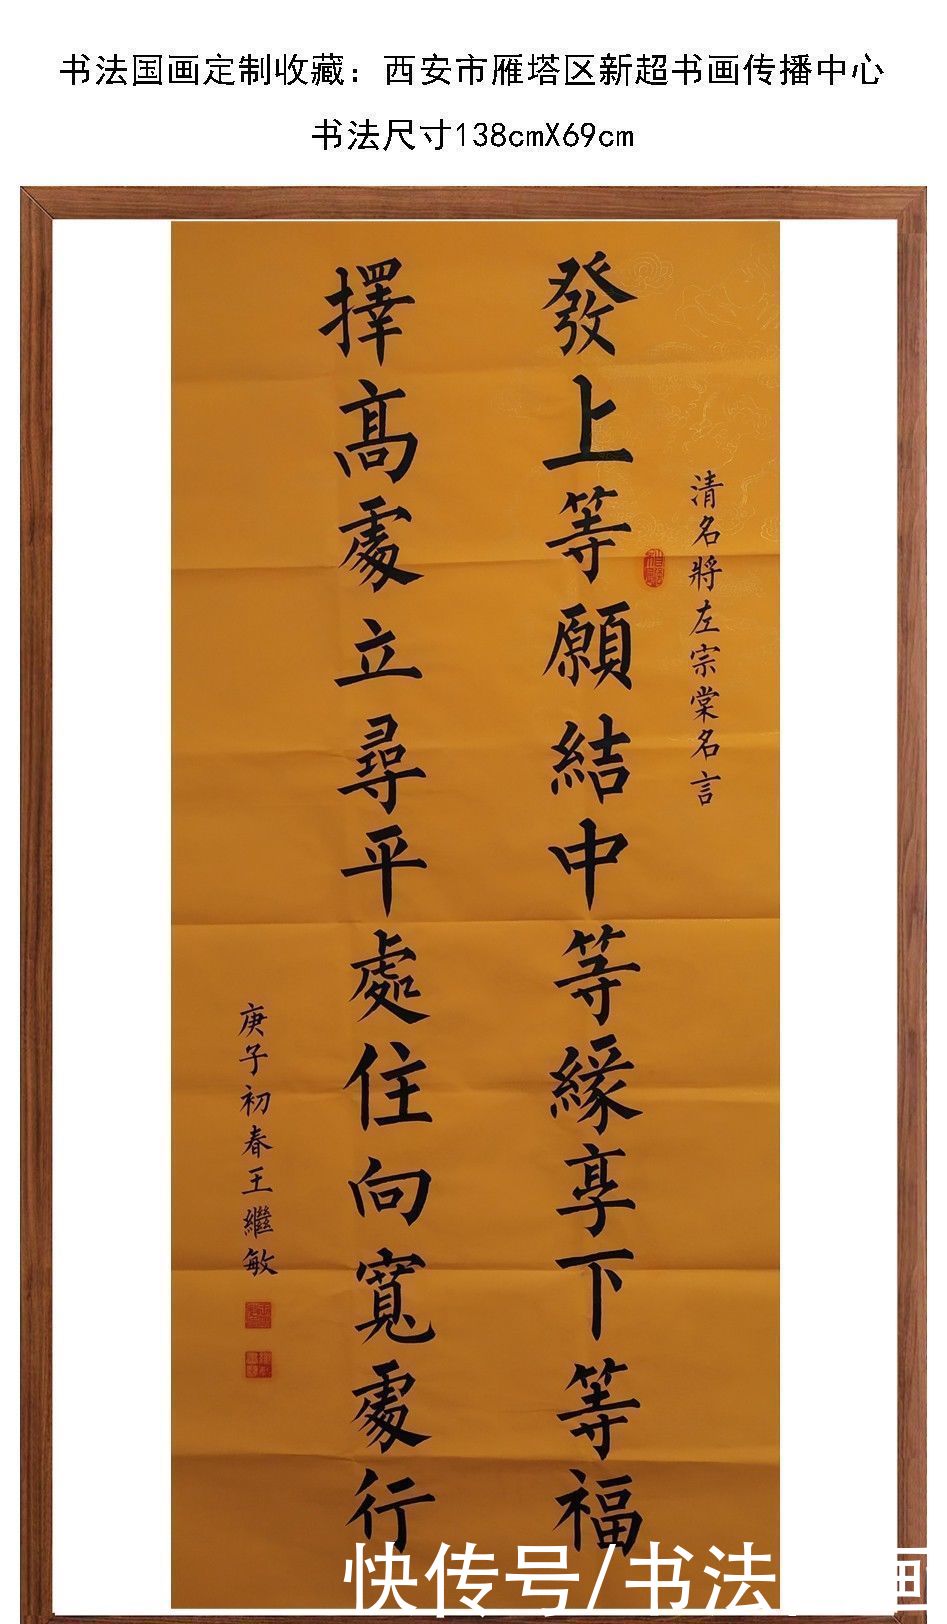 书法国画定制收藏：西安市雁塔区新超书画传播中心
书法尺寸138cmX69cm
清名將左宗棠名言
發上等願結中等緣享下等福
擇高處立尋平處住向寬處行
庚子初春王繼敏
快传号/书法 画